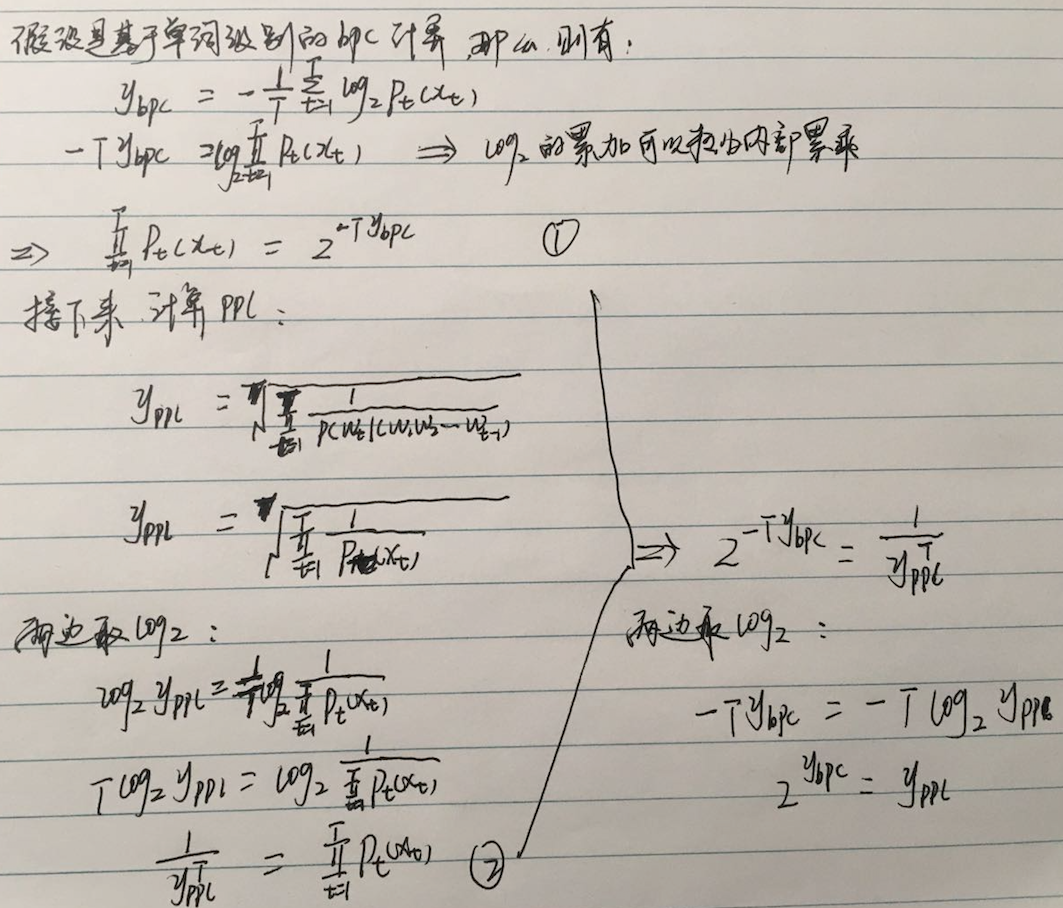 假设是基于单词级别的bpc计算,那么,则有:
y_bpc = -1/T ∑_{t=1}^{T} log₂ P_t(x_t)
-T y_bpc = log₂ ∏_{t=1}^{T} P_t(x_t) ⇒ log₂的累加可以换为内部累乘
⇒ ∏_{t=1}^{T} P_t(x_t) = 2^{-T y_bpc} ①
接下来,计算PPL:
y_ppl = \sqrt[T]{∏_{t=1}^{T} 1/P(w_t|(w₁w₂…w_{t-1})}
y_ppl = \sqrt[T]{∏_{t=1}^{T} 1/P_t(x_t)}
两边取log₂:
log₂ y_ppl = 1/T log₂ 1/∏_{t=1}^{T} P_t(x_t)
T log₂ y_ppl = log₂ 1/∏_{t=1}^{T} P_t(x_t)
1/y_ppl^T = ∏_{t=1}^{T} P_t(x_t) ②
⇒ 2^{-T y_bpc} = 1/y_ppl^T
两边取log₂:
-T y_bpc = -T log₂ y_ppl
2^{y_bpc} = y_ppl